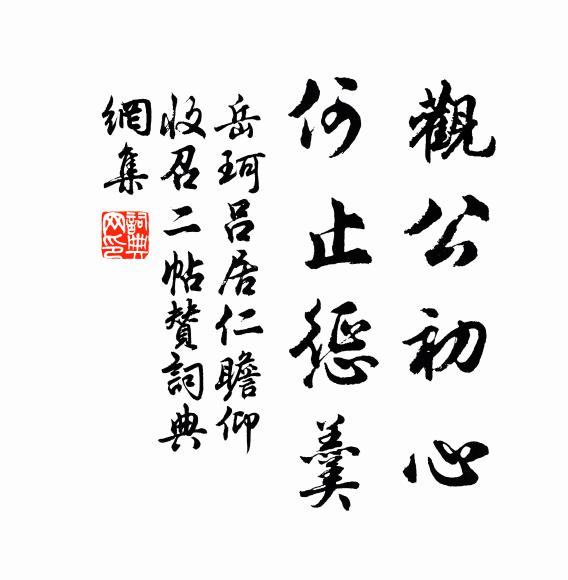 觀公初心
何止懲羹
岳珂呂居仁瞻仰
收召二帖贊詞典
網集
詞典網印